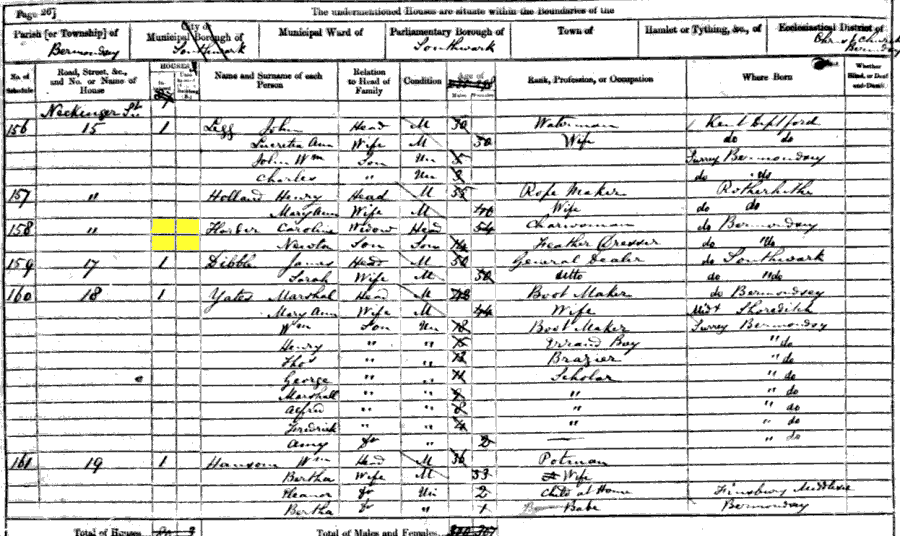 Page 26] The undermentioned Houses are situate within the Boundaries of the
Parish [or Township] of Bermondsey
City or Municipal Borough of Southwark
Municipal Ward of
Parliamentary Borough of Southwark
Town of
Hamlet or Tything, &c., of
Ecclesiastical District of Christ Church Bermondsey
No. of Schedule Road, Street, &c., and No. or Name of House HOUSES Name and Surname of each Person Relation to Head of Family Condition Age of Males Females Rank, Profession, or Occupation Where Born Whether Blind, or Deaf-and-Dumb
Neckinger St
156 15 1 Legg John Head M 50 Waterman Kent Deptford
Lucretia Ann Wife M 50 Wife do do
John Wm Son Un 5 Surrey Bermondsey
Charles " Un 3 do do
157 " Holland Henry Head M 55 Rope Maker Rotherhithe
Mary Ann Wife M 40 Wife do do
158 " Caroline Widow Head 54 Charwoman do Bermondsey
Newton Son Son 14 Feather Dresser do "do
159 17 1 Dibble James Head M 50 General Dealer do Southwark
Sarah Wife M 50 ditto do "do
160 18 1 Yates Marshal Head M 48 Boot Maker do Bermondsey
Mary Ann Wife M 44 Wife Midx Shoreditch
Wm Son Un 18 Boot Maker Surrey Bermondsey
Henry " " 15 Errand Boy " do
Thos " " 13 Brazier " do
George " " 11 Scholar " do
Marshall " " " " do
Alfred " " 8 " " do
Fredrick " " 4 " " do
Amy dr " 2 " do
161 19 1 Hansom Wm Head M 36 Potman
Bertha Wife M 33 Wife
Eleanor dr Un 2 Child at Home Finsbury Middlesex
Bertha dr " 1 Babe Bermondsey
Total of Houses Total of Males and Females